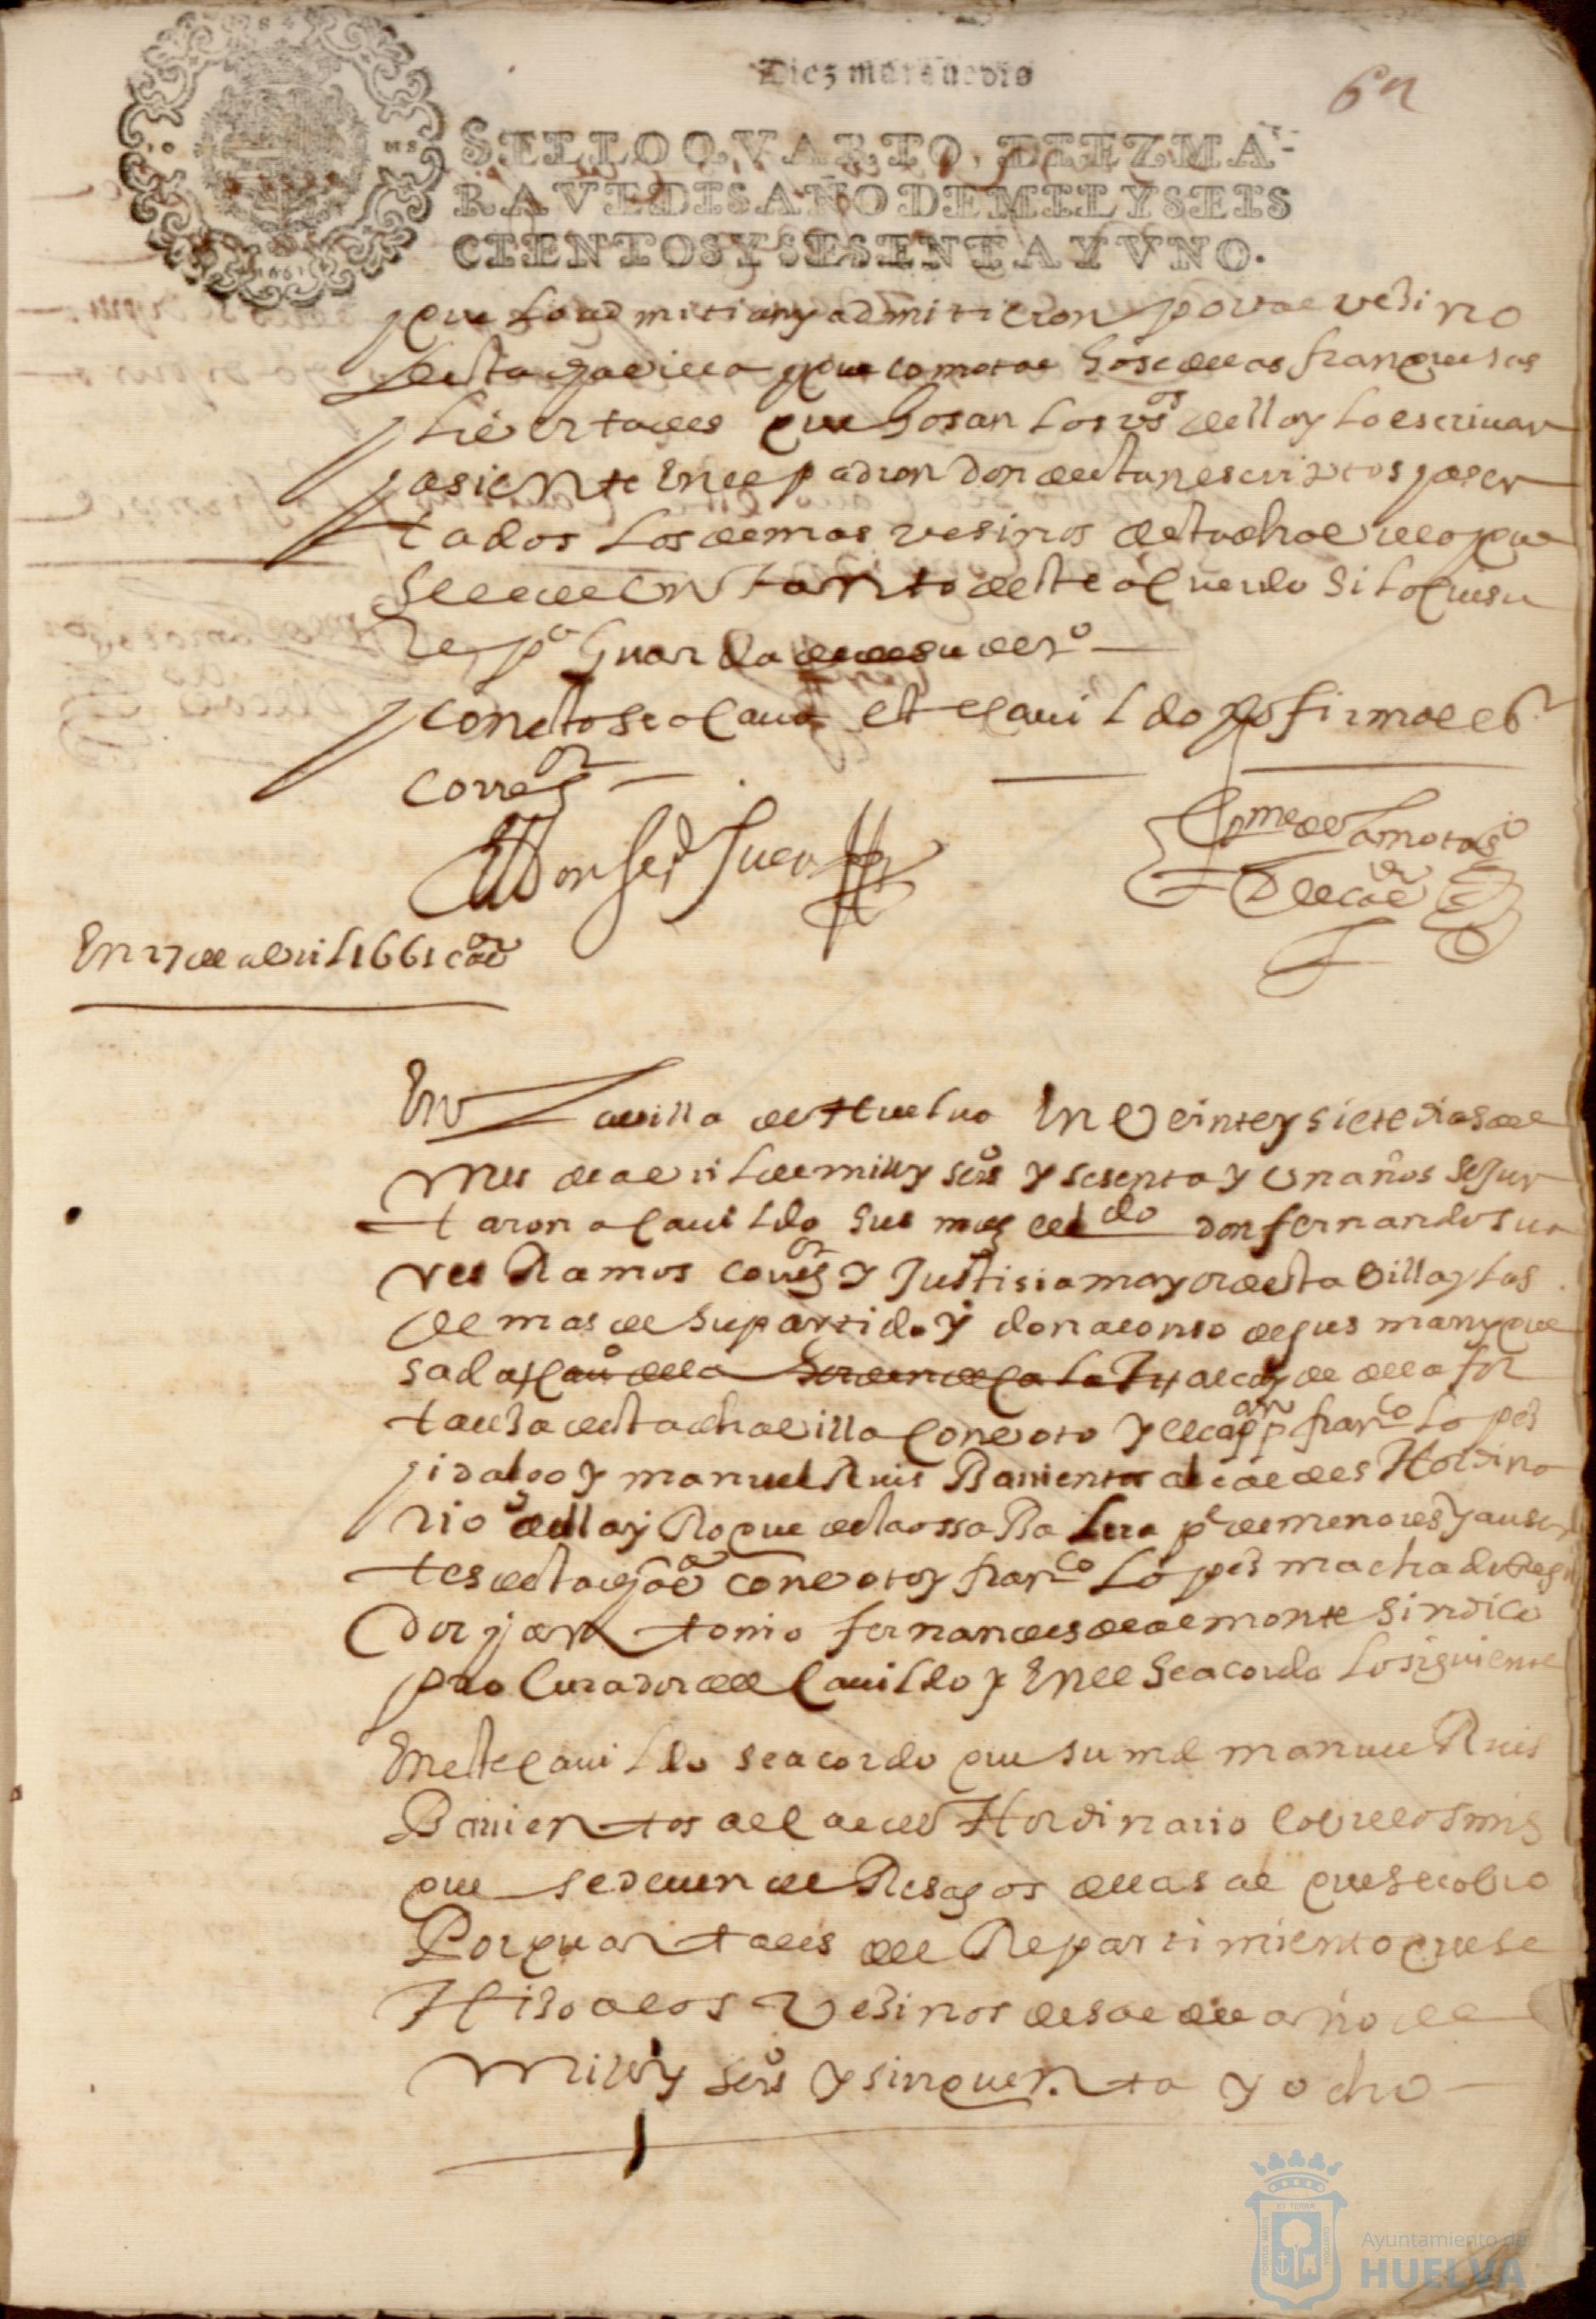 Diez marauedis
SELLO QVARTO, DIEZ MA-
RAVEDIS AÑO DE MIL Y SEIS
CIENTOS Y SESENTA Y VNO.
que lo admitian y admitieron por tal vesino
desta dha villa y que como tal gose de las franquesas
y livertades que gosan los vsos della y lo escrivan
y asiente en el padron don destan escriptos y asen
tados los demas vesinos desta dha villa y que
se le de un tanto deste acuerdo si lo quisie
re pa guarda de su dero
y con esto se acavo este cavildo y lo firmo el sr
corregor
Don ferdo Suers
Bme de Lamotas
esno de cavdo
En 27 de abril 1661 cavdo
En La villa de Huelva En Veinte y siete dias del
mes de abril de mill y seiso y sesenta y un años se jun
taron a cavildo sus mds el ldo don fernando sua
res Ramos corregor y Justisia mayor desta villa y las
demas de su partido y don alonso de gusman y que
sada cavo de la horden de calatra alcayde de la for
talesa desta dha villa con voto y el capan franco Lopes
jidalgo y manuel Ruis Barrientos alcaldes Hordina
rios della y Roque de la ossa pe de menores y ausen
tes desta dha va con voto y franco Lopes machado Regi
dor y antonio fernandes de almonte sindico
procurador del cavildo y En el se acordo Lo siguiente
En este cavildo se acordo que su md manuel Ruis
Barrientos alcalde Hordinario cobre los mrs
que se deven de Resagos de la sal que se cobro
Por quartales del Repartimiento que se
Hiso a los Vesinos desde el año de
mill y seiso y sinquenta y ocho
Ayuntamiento de
HUELVA